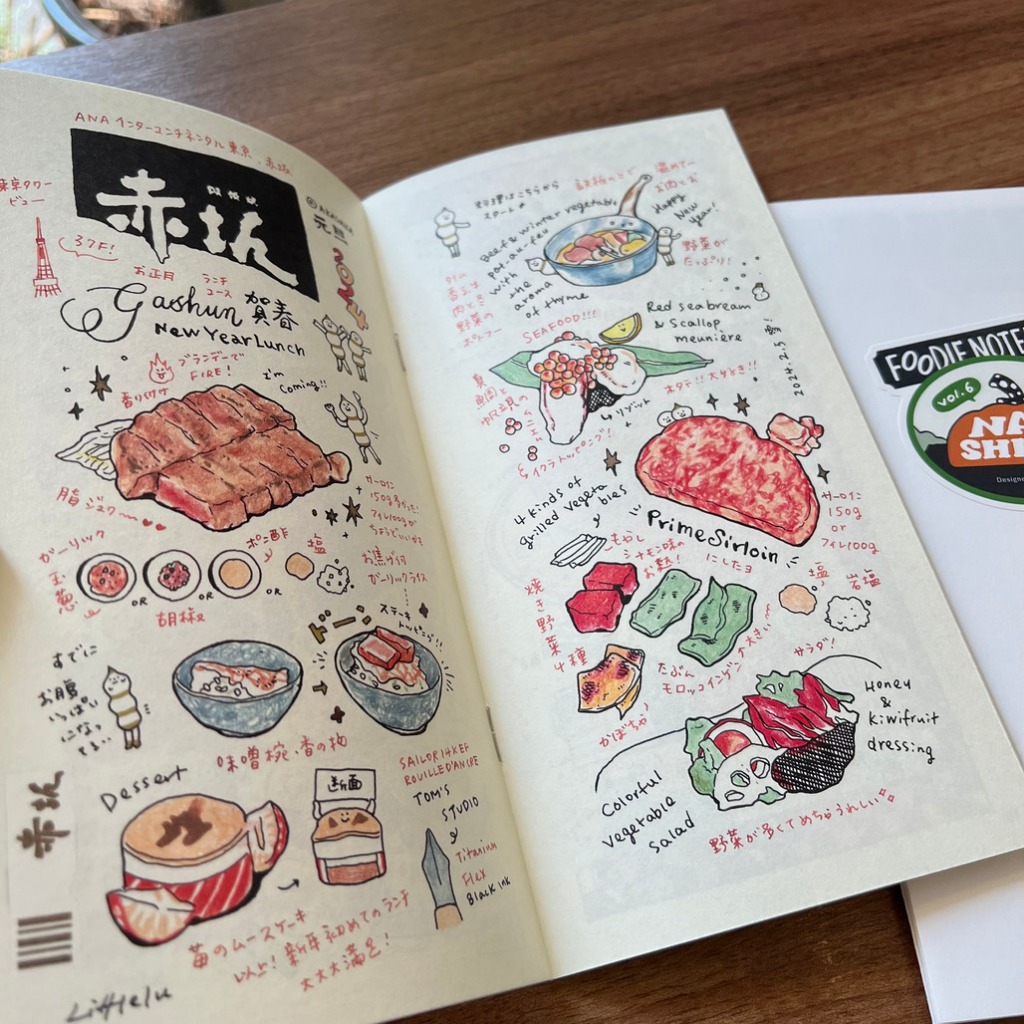 ANA インターコンチネンタル東京、赤坂
赤坂
東京タワー
ビュー
37F!
お正月
ランチ
コース
Gashun 賀春
New Year Lunch
ブランデーで
FIRE!
香り付け
I'm
coming!!
脂ジュワ〜
サーロイン
ガーリック
玉葱
OR
OR
OR
ポン酢
塩
胡椒
お焦げ付
ガーリックライス
ステーキ
トッピング!!
ドーン
すでに
お腹
いっぱい
になっ
てる..
味噌椀、香の物
赤坂
Dessert
断面
SAILOR 14K EF
ROUILLE D'ANCRE
TOM'S
STUDIO
&
Titanium
Flex
Black ink
苺のムースケーキ
以上!新年初めてのランチ
大大大満足!
Littlelu
料理はこちらから
スタート
Beef & winter vegetable
pot-au-feu
with
the
aroma
of thyme
Happy
New
Year!
野菜が
たっぷり!
SEAFOOD!!!
Red seabream
& Scallop
meunière
2024.2.5
イクラトッピング!
リゾット
4 kinds of
grilled vegeta
bles
Prime Sirloin
にしたヨ
サーロイン
150g
or
フィレ100g
もやし
シナモン味の
お麩!
塩
岩塩
焼き野菜4種
たぶん
モロッコインゲン
大きい
かぼちゃ
サラダ!
Honey
&
Kiwifruit
dressing
Colorful
vegetable
salad
野菜が多くてめちゃうれしい
FOODIE NOTE
vol.6
NA
SHI
Designe